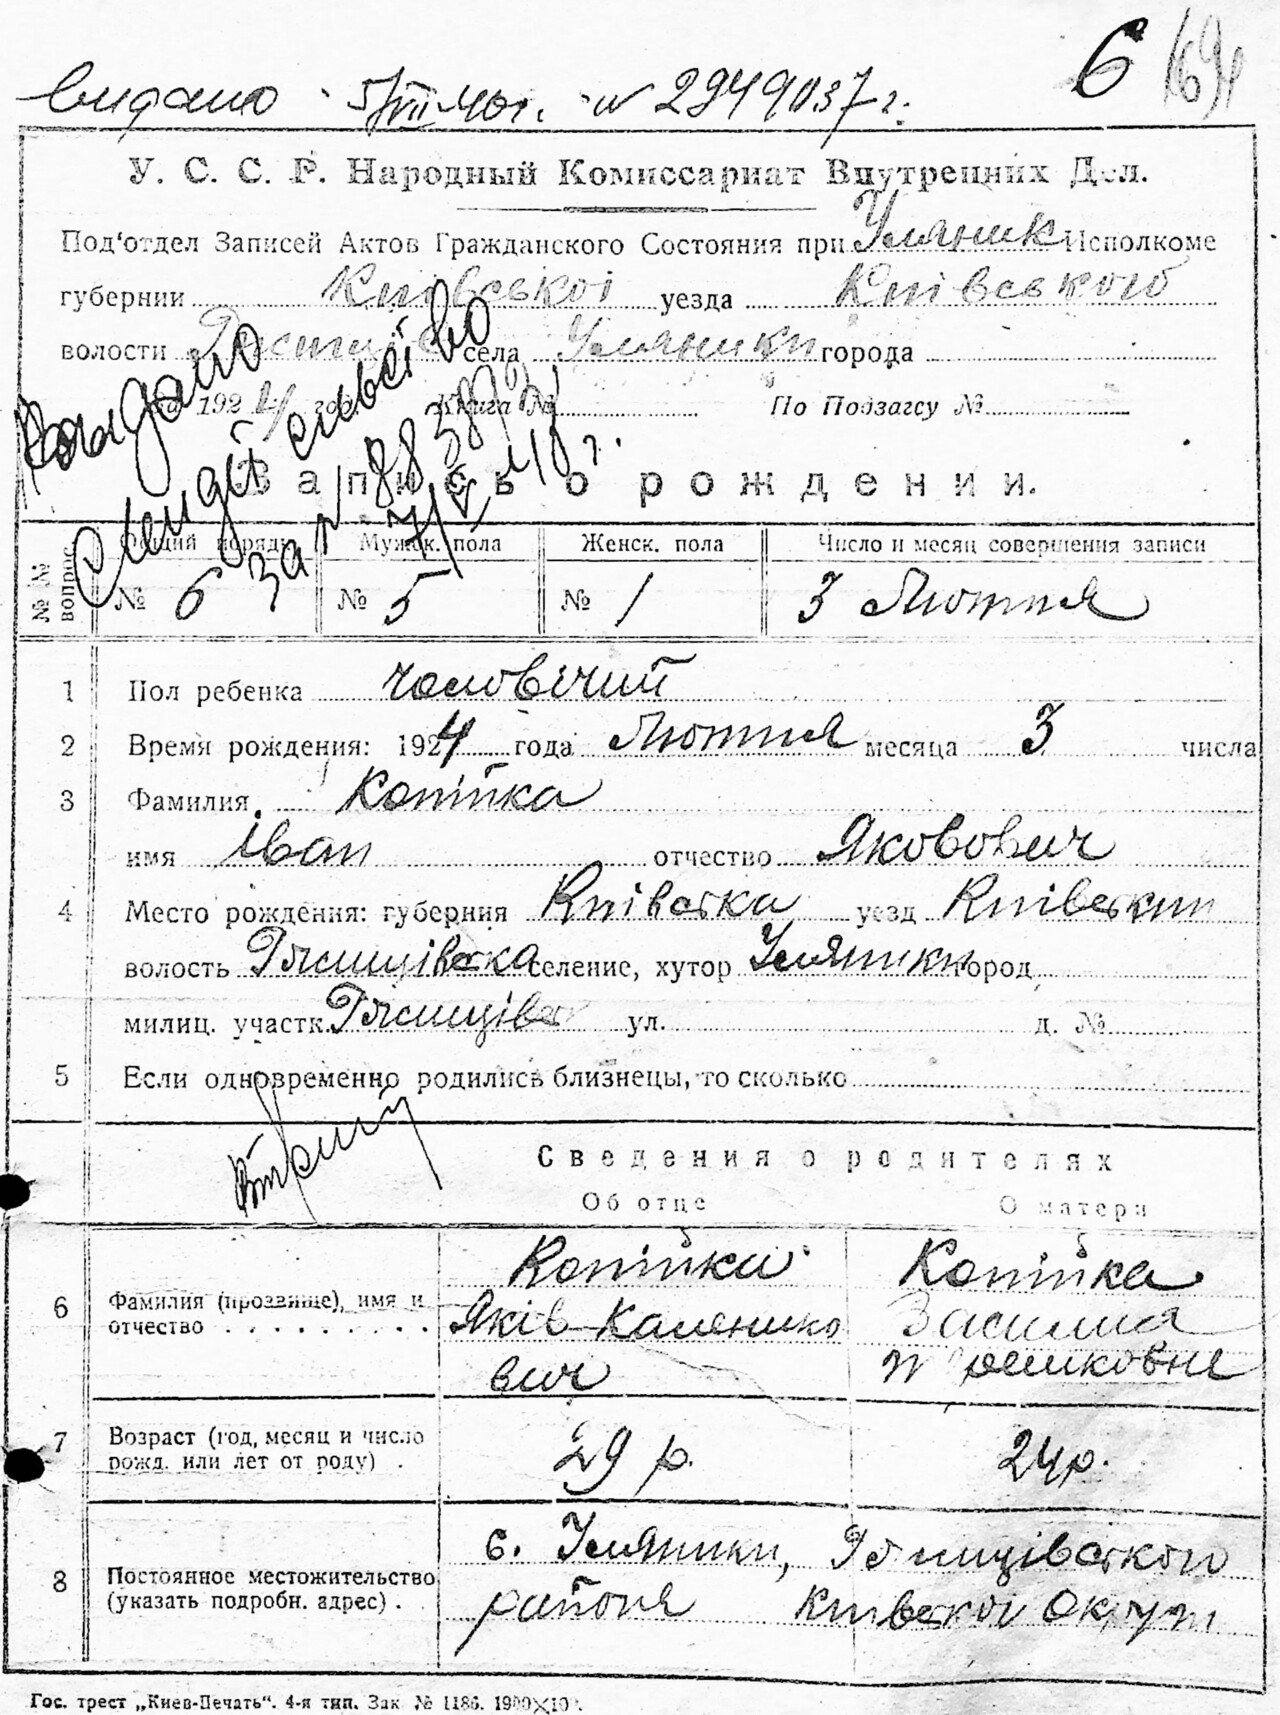 6
видано 5/VII 40 г. № 2949037 г.
У. С. С. Р. Народный Комиссариат Внутренних Дел.
Под'отдел Записей Актов Гражданского Состояния при Уляник Исполкоме
губернии Київської уезда Київського
волости села Уляники города
на 1924 год Книга № По Подзагсу №
видано
за № 7/V 48 г.
Запись о рождении.
№№ вопрос. Общий поряд. Мужск. пола Женск. пола Число и месяц совершения записи
№ 6 № 5 № 1 3 Лютня
1 Пол ребенка чоловічий
2 Время рождения: 1924 года Лютня месяца 3 числа
3 Фамилия Копійка
имя Іван отчество Яковович
4 Место рождения: губерния Київська уезд Київський
волость селение, хутор Уляники город
милиц. участк. ул. д. №
5 Если одновременно родились близнецы, то сколько
Сведения о родителях
Об отце О матери
6 Фамилия (прозвище), имя и отчество Копійка Яків Каленикович Копійка Василина
7 Возраст (год, месяц и число рожд. или лет от роду) 29 р. 24 р.
8 Постоянное местожительство (указать подробн. адрес) с. Уляники,
района Київської Округи
Гос. трест „Киев-Печать“. 4-я тип. Зак. № 1186.